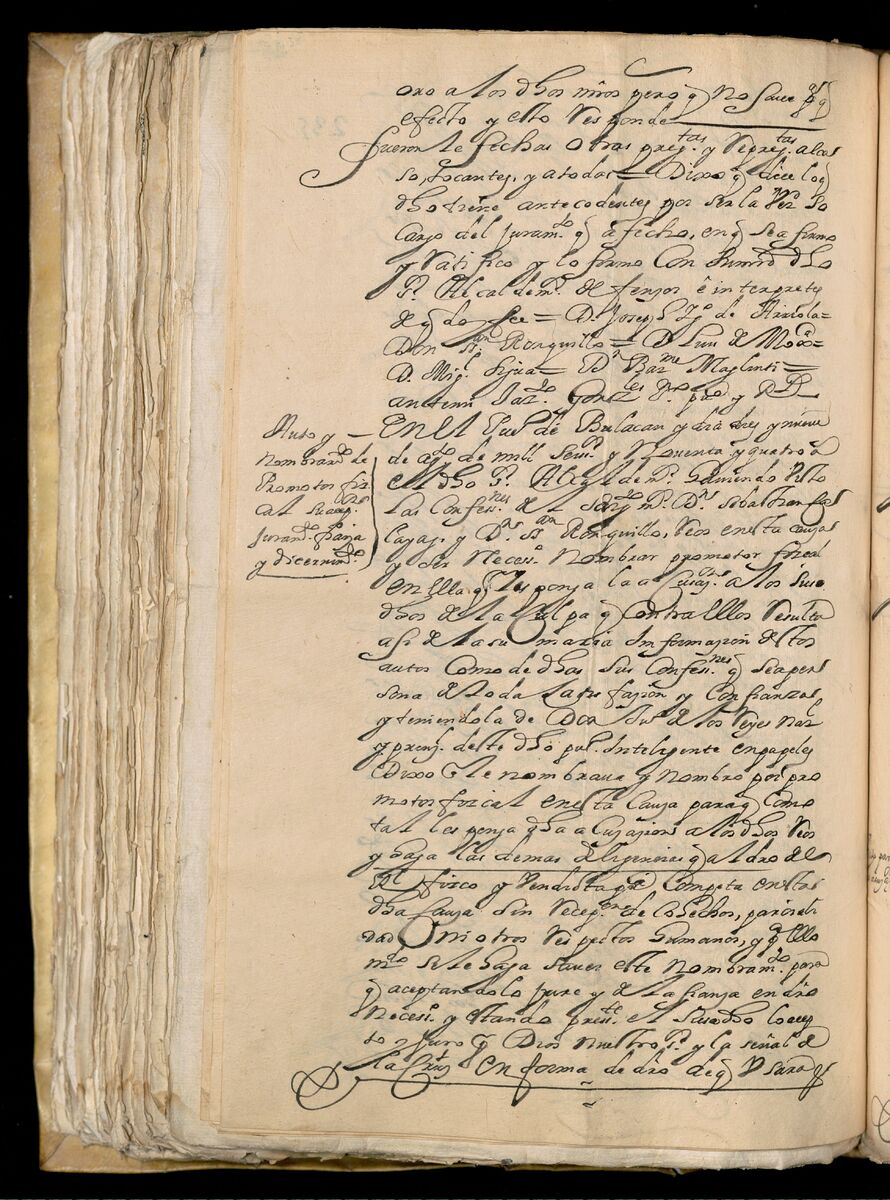 oro a los dhos mros pero q no save pa q
efecto y esto Responde
fueron le fechas otras preg.tas y Repreg.tas al ca
so, tocantes, y a todas = Dixo q dice lo q
dho tiene antecedentes por ser la Verd so
cargo del juram.to q a fecho, en q se afirmo
y Ratifico y lo firmo Con su md dho
S.r Alcalde m.r defensor e interprete
de q doy fee = D. Joseph de Arriola =
Don Ronquillo = D. Luis de =
D. Mig.l = D.n Bar.me =
antemi Gonz.les pu.co y
Auto y
nombram.to de
Promotor fis
cal su acep.on
juram.to fianza
y dicernim.to
En el Pueb.o de Bulacan a dias y nueve
de ag.to de mill Sett.s y quarenta y quatro a.s
el dho S.r Alcalde m.r haviendo visto
las Confes.nes de el Sarg.to m.r D.n Sebastian
y D.n Ronquillo, Reos en esta causa
y ser Neces.o Nombrar promotor fizcal
en ella q les ponga la acusaz.on a los suso
dhos de la Culpa q Contra ellos Resulta
asi de la sumaria Informazion destos
autos Como de dhas sus Confes.nes q sea per
sona de toda satisfazion y Confianza,
y teniendola de Don Ju.o de los Reyes Nat.l
y prenz.l deste dho pu.o Inteligente en papeles
Dixo q le nombrava y Nombro por pro
motor fizcal en esta Causa para q Como
tal les ponga dha acuzazion a los dhos Reos
y haga las demas diligencias q al dro de el
R.l fizco y Vendicta pu.ca Competa en esta
dha Causa sin Recep.on de Cohechos, parciali
dad Ni otros Respectos humanos, y q p.a ello
m.do se le haga saver este Nombram.to para
q aceptandolo jure y de la fianza en dro
Neces.a y estando press.te el susodho lo acep
to y Juro p.r Dios nuestro S.r y la señal de
la Cruz en forma de dro de q Vsara